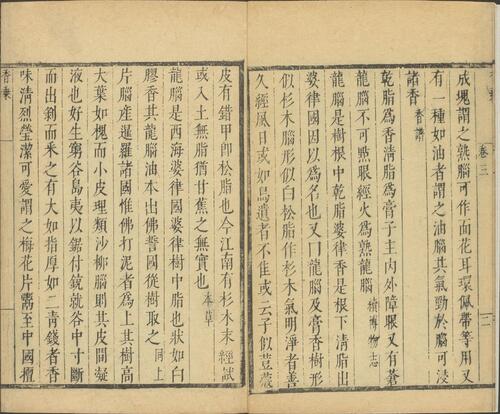 成塊謂之熟腦可作面花耳環佩帶等用又
有一種如油者謂之油腦其氣勁於腦可浸
諸香 香譜
乾脂爲香清脂爲膏子主內外障眼又有蒼
龍腦不可點眼經火爲熟龍腦 續博物志
龍腦是樹根中乾脂婆律香是根下清脂出
婆律國因以爲名也又曰龍腦及膏香樹形
似杉木腦形似白松脂作杉木氣明淨者善
久經風日或如鳥遺者不佳或云子似荳蔻
卷三
二
皮有錯甲卽松脂也今江南有杉木末經試
或入土無脂猶甘蕉之無實也 本草
龍腦是西海婆律國婆律樹中脂也狀如白
膠香其龍腦油本出佛誓國從樹取之 同上
片腦產暹羅諸國惟佛打泥者爲上其樹高
大葉如槐而小皮理類沙柳腦則其皮間凝
液也好生窮谷島夷以鋸付銃就谷中寸斷
而出剝而采之有大如指厚如二青錢者香
味清烈瑩潔可愛謂之梅花片鬻至中國擅
香乘